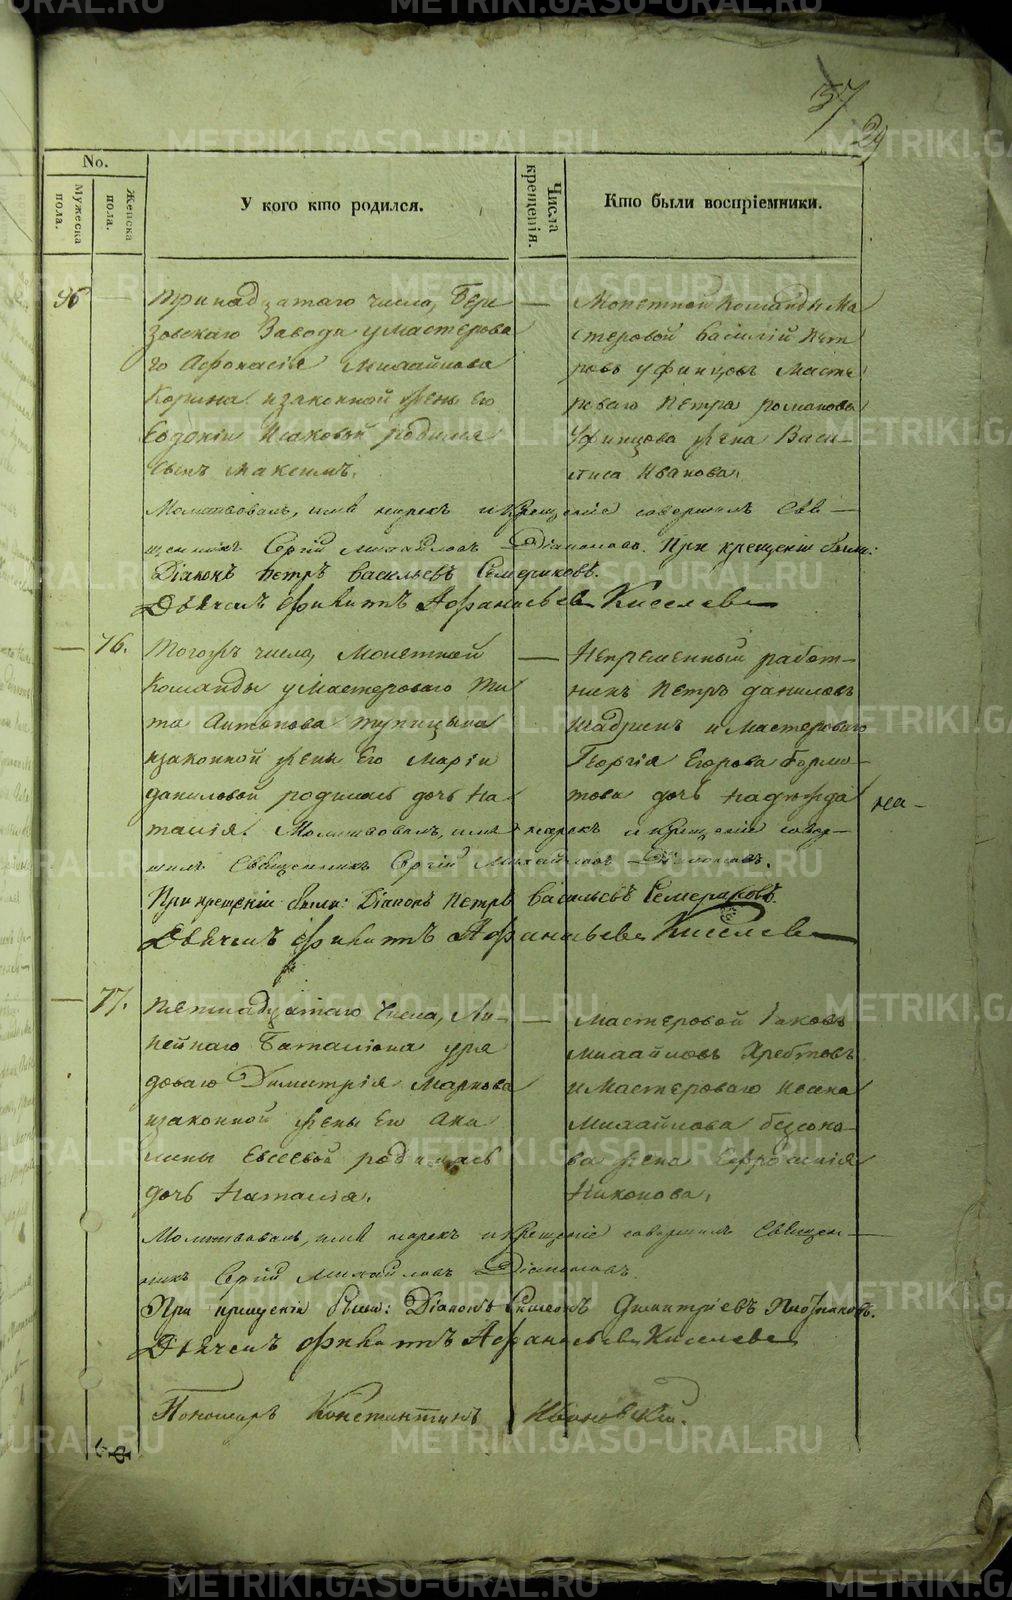 METRIKI.GASO-URAL.RU
57
29
No.
Мужеска пола.
Женска пола.
У кого кто родился.
Числа крещенія.
Кто были воспріемники.
96
тринадцатаго числа, Бере
зовскаго Завода у мастерова
го Афонасія Михайлова
Корина и законной жены Его
Евдокіи Исаковой родился
сынъ Максимъ.
—
Монетной Команды Ма
стеровой Василій Пет
ровъ Уфинцовъ Масте
роваго Петра Романова
Уфинцова жена Васи—
лиса Иванова.
Молитвовалъ, имя нарекъ и крещеніе совершилъ Свя—
щенникъ Сергій Михайловъ Діаконовъ. При крещеніи были:
Діаконъ Петръ Васильевъ Семериковъ.
Дьячекъ Филиппъ Афанасьевъ Киселевъ
— 76.
Тогожъ числа, Монетной
Команды у Мастероваго Ти
та Антонова Тупицына
и законной жены Его Маріи
Даниловой родилась дочь На
талія.
—
Непременный работ—
никъ Петръ Даниловъ
Шадринъ и Мастероваго
Георгія Егорова
това дочь Надежда
на—
Молитвовалъ, имя нарекъ и крещеніе совер—
шилъ Священникъ Сергій Михайловъ Діаконовъ.
При крещеніи были: Діаконъ Петръ Васильевъ Семериковъ.
Дьячекъ Филиппъ Афанасьевъ Киселевъ
— 77.
Пятнадцатаго Числа, Ли—
нейнаго Баталіона у ря
доваго Димитрія Маркова
и законной жены Его Аки
лины Евсеевой родилась
дочь Наталія.
—
Мастеровой Яковъ
Михайловъ Хребтовъ
и Мастероваго Исака
Михайлова Безсоно—
ва жена Ефросинія
Никонова.
Молитвовалъ, имя нарекъ и крещеніе совершилъ Священ—
никъ Сергій Михайловъ Діаконовъ.
При крещеніи были: Діаконъ Симеонъ Димитріевъ
Дьячекъ Филиппъ Афанасьевъ Киселевъ
Пономарь Константинъ Ивановскій.